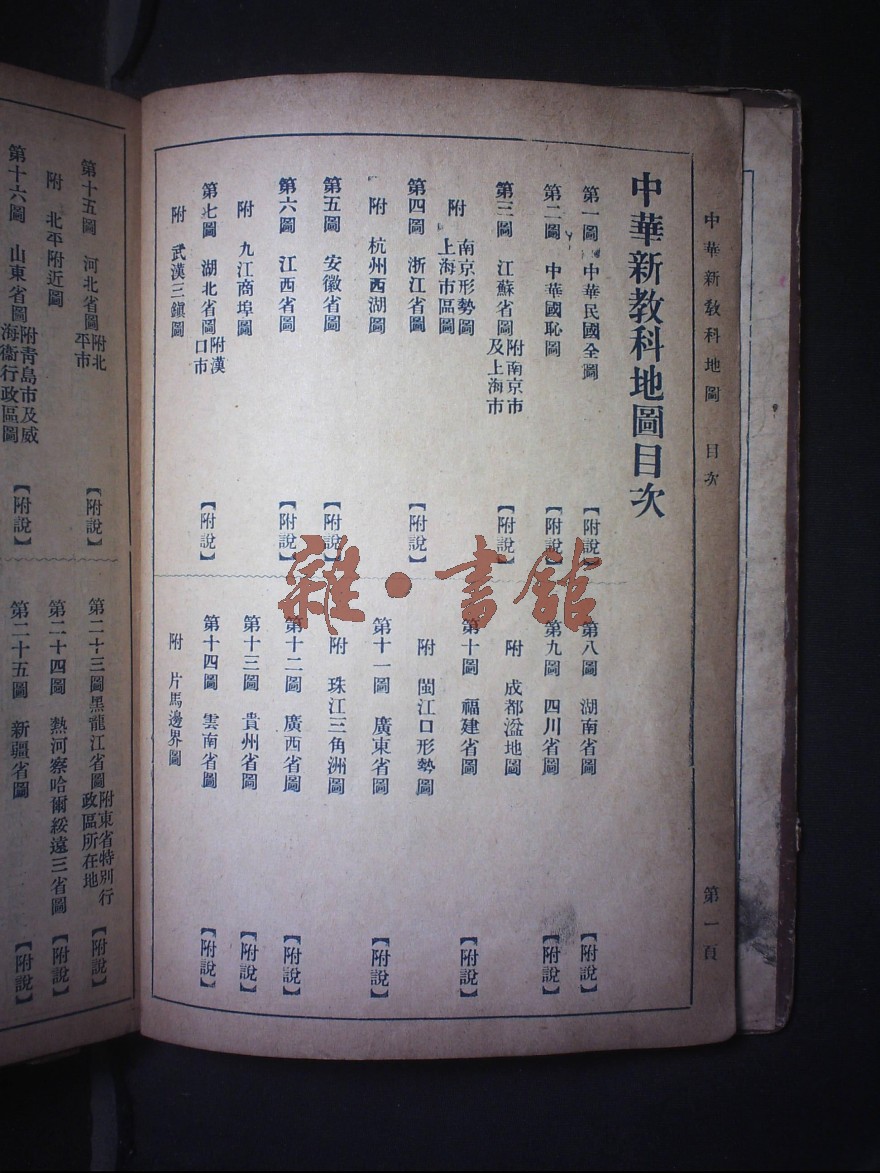 中華新教科地圖　目次　第一頁
中華新教科地圖目次
第一圖　中華民國全圖　【附說】
第二圖　中華國恥圖　【附說】
第三圖　江蘇省圖附南京市及上海市　【附說】
附　南京形勢圖
上海市區圖
第四圖　浙江省圖　【附說】
附　杭州西湖圖
第五圖　安徽省圖　【附說】
第六圖　江西省圖　【附說】
附　九江商埠圖
第七圖　湖北省圖附漢口市　【附說】
附　武漢三鎭圖
第八圖　湖南省圖　【附說】
第九圖　四川省圖　【附說】
附　成都湓地圖
第十圖　福建省圖　【附說】
附　閩江口形勢圖
第十一圖　廣東省圖　【附說】
附　珠江三角洲圖
第十二圖　廣西省圖　【附說】
第十三圖　貴州省圖　【附說】
第十四圖　雲南省圖　【附說】
附　片馬邊界圖
第十五圖　河北省圖附北平市　【附說】
附　北平附近圖
第十六圖　山東省圖附靑島市及威海衞行政區圖　【附說】
第二十三圖黑龍江省圖附東省特別行政區所在地　【附說】
第二十四圖　熱河察哈爾綏遠三省圖　【附說】
第二十五圖　新疆省圖　【附說】
雜·書館